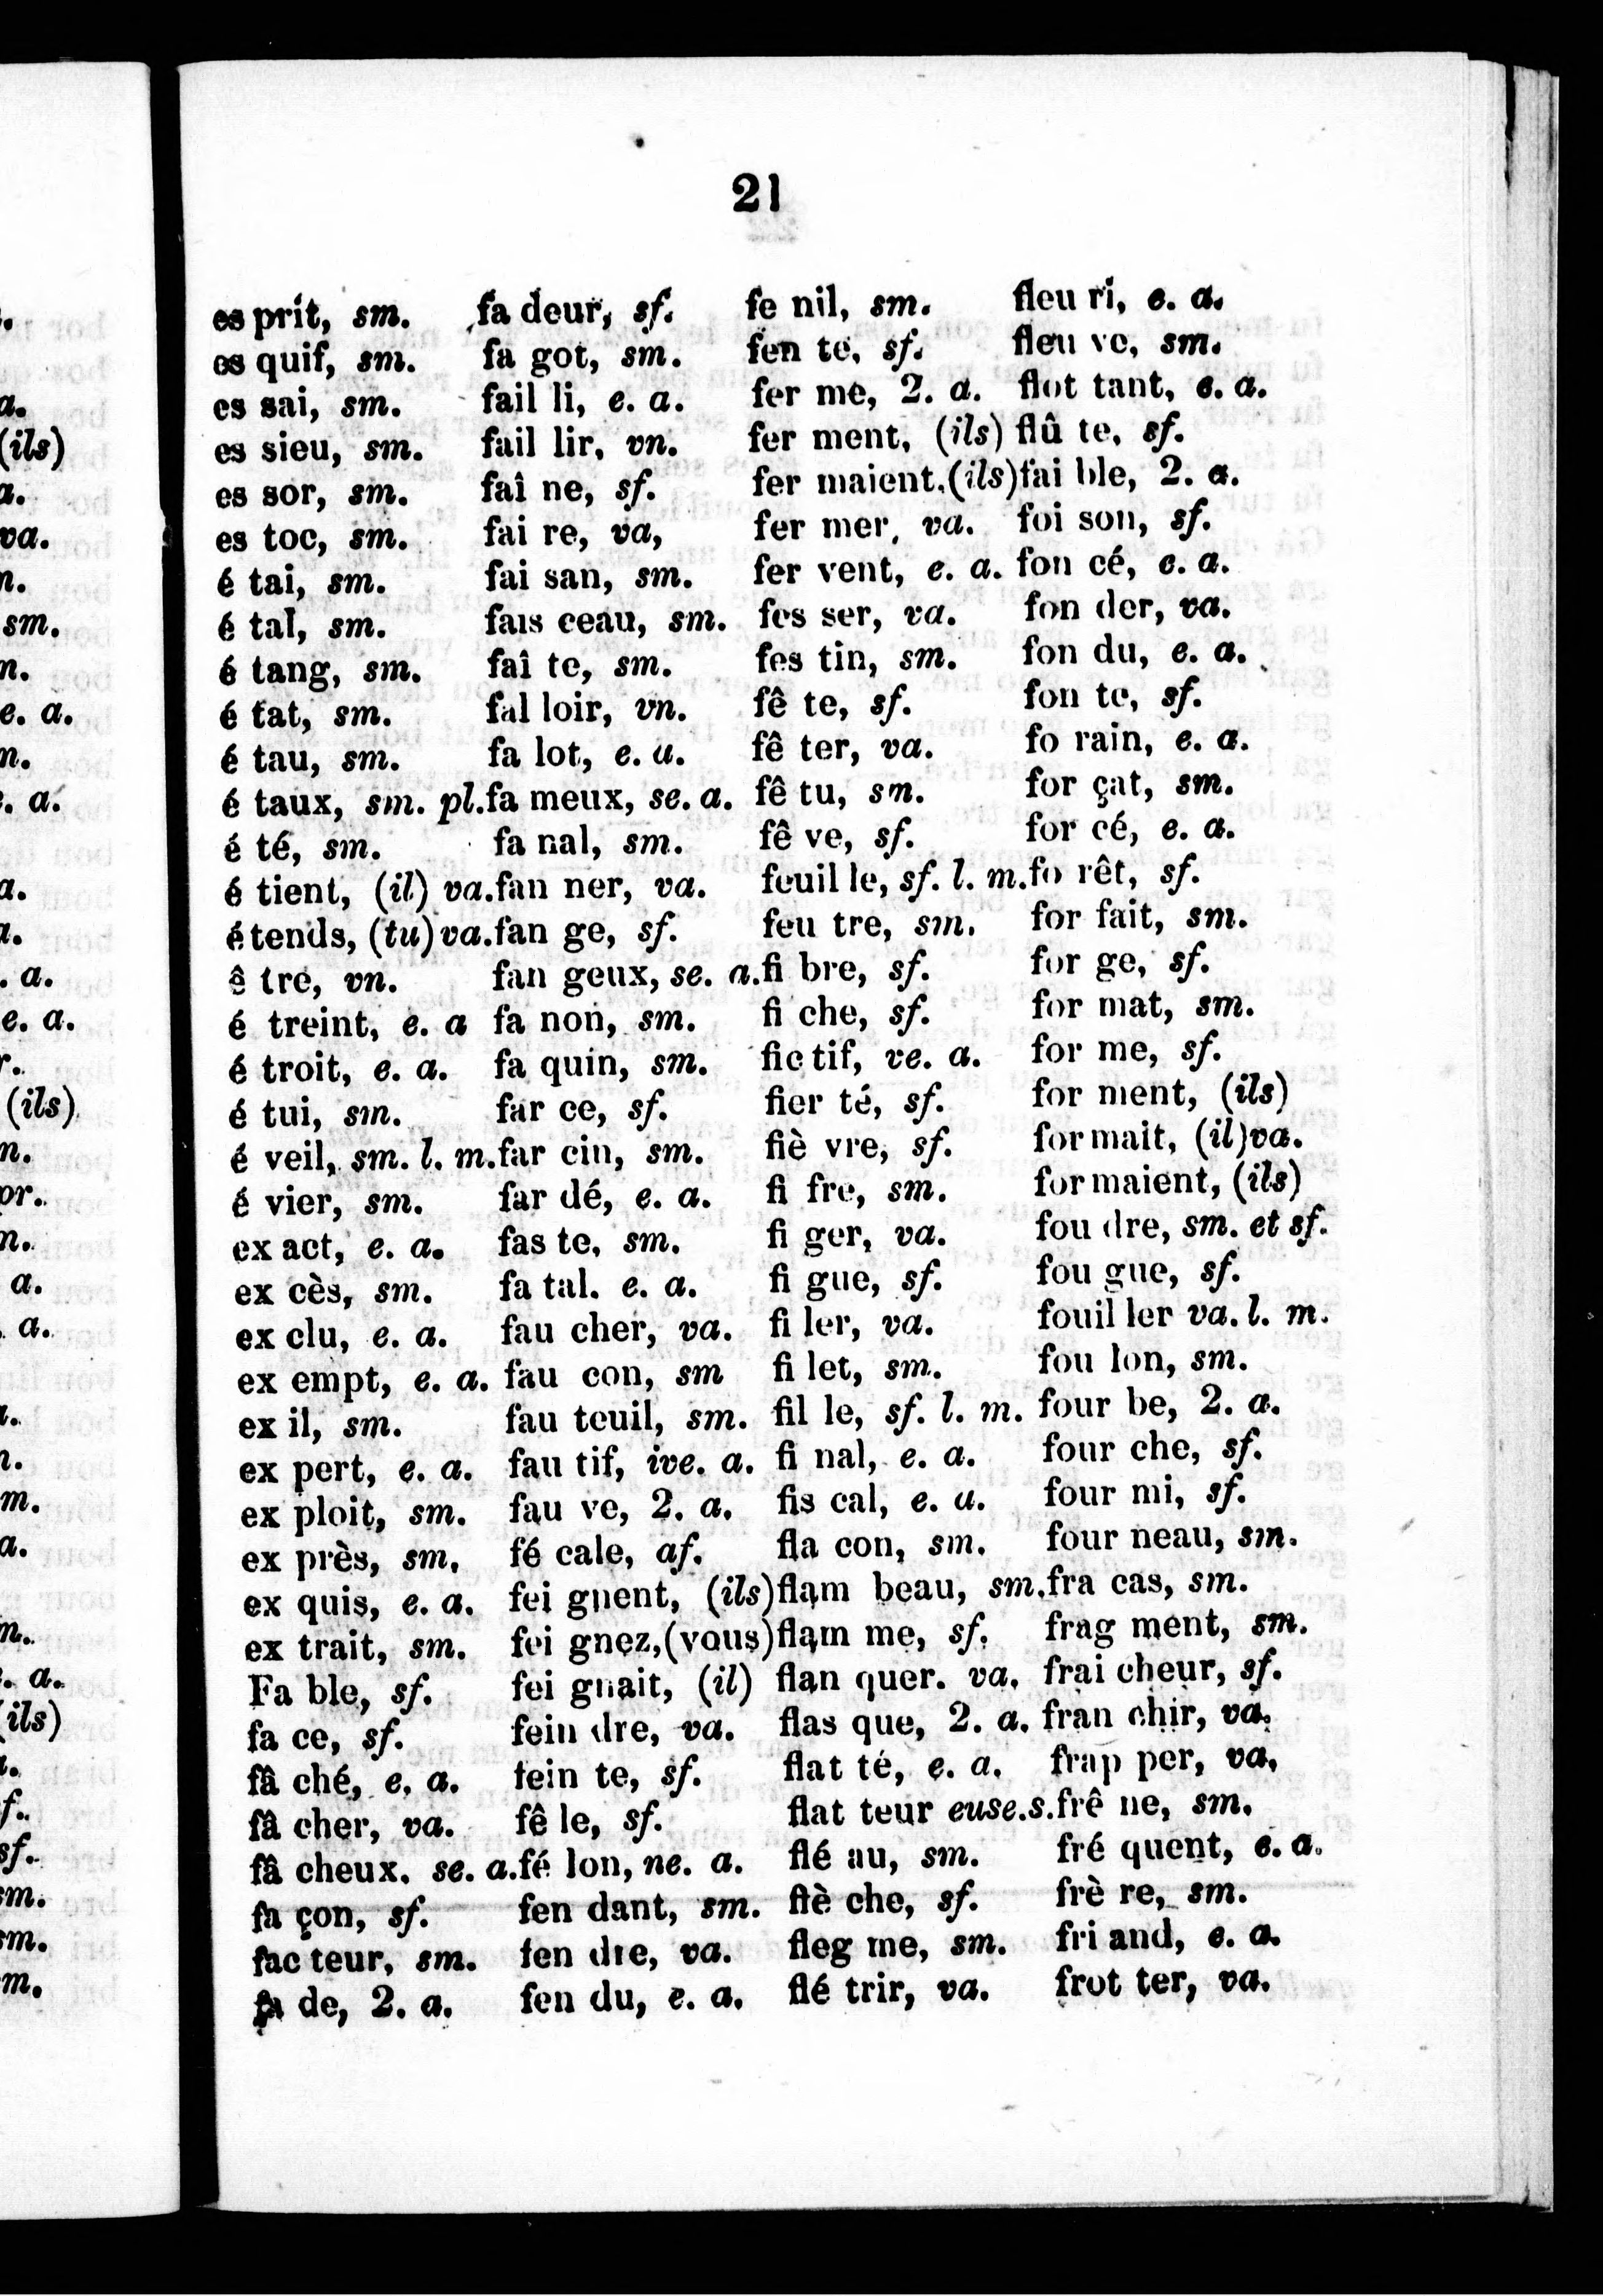 21
es prit, sm.
es quif, sm.
es sai, sm.
es sieu, sm.
es sor, sm.
es toc, sm.
é tai, sm.
é tal, sm.
é tang, sm.
é tat, sm.
é tau, sm.
é taux, sm. pl.
é té, sm.
é tient, (il) va.
é tends, (tu) va.
ê tre, vn.
é treint, e. a
é troit, e. a.
é tui, sm.
é veil, sm. l. m.
é vier, sm.
ex act, e. a.
ex cès, sm.
ex clu, e. a.
ex empt, e. a.
ex il, sm.
ex pert, e. a.
ex ploit, sm.
ex près, sm.
ex quis, e. a.
ex trait, sm.
Fa ble, sf.
fa ce, sf.
fâ ché, e. a.
fâ cher, va.
fâ cheux. se. a.
fa çon, sf.
fac teur, sm.
fa de, 2. a.
fa deur, sf.
fa got, sm.
fail li, e. a.
fail lir, vn.
faî ne, sf.
fai re, va,
fai san, sm.
fais ceau, sm.
faî te, sm.
fal loir, vn.
fa lot, e. a.
fa meux, se. a.
fa nal, sm.
fan ner, va.
fan ge, sf.
fan geux, se. a.
fa non, sm.
fa quin, sm.
far ce, sf.
far cin, sm.
far dé, e. a.
fas te, sm.
fa tal. e. a.
fau cher, va.
fau con, sm
fau teuil, sm.
fau tif, ive. a.
fau ve, 2. a.
fé cale, af.
fei gnent, (ils)
fei gnez, (vous)
fei gnait, (il)
fein dre, va.
fein te, sf.
fê le, sf.
fé lon, ne. a.
fen dant, sm.
fen dre, va.
fen du, e. a.
fe nil, sm.
fen te, sf.
fer me, 2. a.
fer ment, (ils)
fer maient, (ils)
fer mer, va.
fer vent, e. a.
fes ser, va.
fes tin, sm.
fê te, sf.
fê ter, va.
fê tu, sm.
fê ve, sf.
feuil le, sf. l. m.
feu tre, sm.
fi bre, sf.
fi che, sf.
fic tif, ve. a.
fier té, sf.
fiè vre, sf.
fi fre, sm.
fi ger, va.
fi gue, sf.
fi ler, va.
fi let, sm.
fil le, sf. l. m.
fi nal, e. a.
fis cal, e. a.
fla con, sm.
flam beau, sm.
flam me, sf.
flan quer. va.
flas que, 2. a.
flat té, e. a.
flat teur euse. s.
flé au, sm.
flè che, sf.
fleg me, sm.
flé trir, va.
fleu ri, e. a.
fleu ve, sm.
flot tant, e. a.
flû te, sf.
fai ble, 2. a.
foi son, sf.
fon cé, e. a.
fon der, va.
fon du, e. a.
fon te, sf.
fo rain, e. a.
for çat, sm.
for cé, e. a.
fo rêt, sf.
for fait, sm.
for ge, sf.
for mat, sm.
for me, sf.
for ment, (ils)
for mait, (il) va.
for maient, (ils)
fou dre, sm. et sf.
fou gue, sf.
fouil ler va. l. m.
fou lon, sm.
four be, 2. a.
four che, sf.
four mi, sf.
four neau, sm.
fra cas, sm.
frag ment, sm.
frai cheur, sf.
fran chir, va.
frap per, va.
frê ne, sm.
fré quent, e. a.
frè re, sm.
fri and, e. a.
frot ter, va.